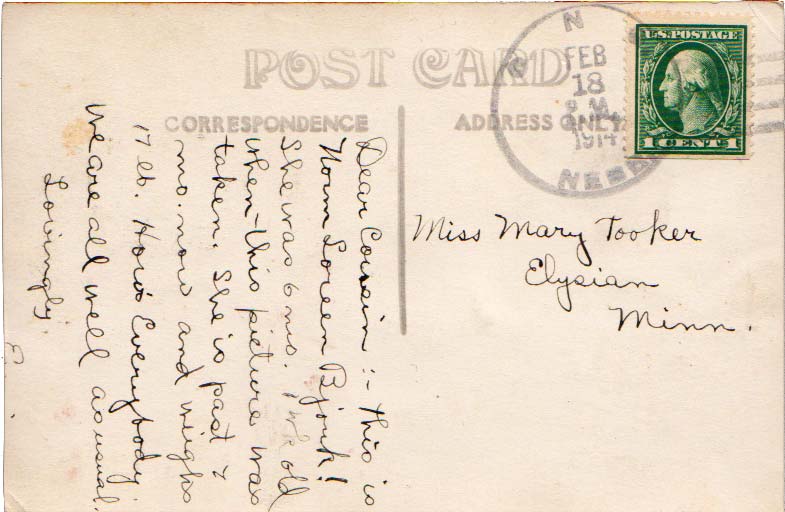 POST CARD
CORRESPONDENCE
ADDRESS ONLY
N
FEB
18
M
1914
NEBR
U.S. POSTAGE
1 CENT 1
Miss Mary Tooker
Elysian
Minn.
Dear Cousin :- This is
Norm Loreen Bjork!
She was 6 mo. old
when this picture was
taken. She is past 7
mo. now and weighs
17 lb. How's Everybody
We are all well as usual.
Lovingly.
E.